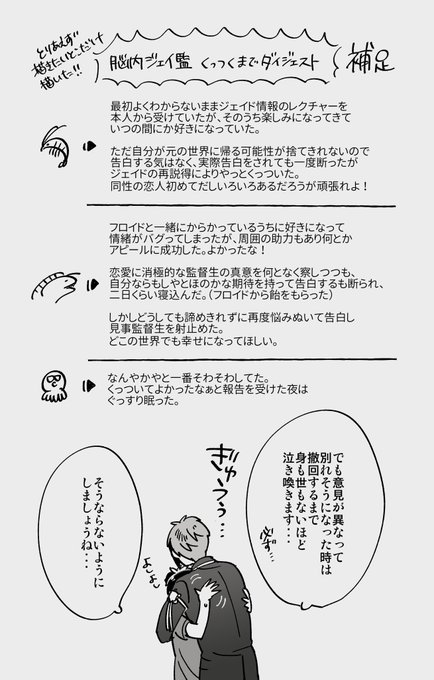 とりあえず
描きたいとこだけ
描いた!!
脳内ジェイ監 くっつくまでダイジェスト
補足
最初よくわからないままジェイド情報のレクチャーを
本人から受けていたが、そのうち楽しみになってきて
いつの間にか好きになっていた。
ただ自分が元の世界に帰る可能性が捨てきれないので
告白する気はなく、実際告白をされても一度断ったが
ジェイドの再説得によりやっとくっついた。
同性の恋人初めてだしいろいろあるだろうが頑張れよ!
フロイドと一緒にからかっているうちに好きになって
情緒がバグってしまったが、周囲の助力もあり何とか
アピールに成功した。よかったな!
恋愛に消極的な監督生の真意を何となく察しつつも、
自分ならもしやとほのかな期待を持って告白するも断られ、
二日くらい寝込んだ。(フロイドから飴をもらった)
しかしどうしても諦めきれずに再度悩みぬいて告白し
見事監督生を射止めた。
どこの世界でも幸せになってほしい。
なんやかやと一番そわそわしてた。
くっついてよかったなぁと報告を受けた夜は
ぐっすり眠った。
でも意見が異なって
別れそうになった時は
撤回するまで
身も世もないほど
泣き喚きます・・・
必ず…
ぎゅうぅ…
よしよし
そうならないように
しましょうね・・・